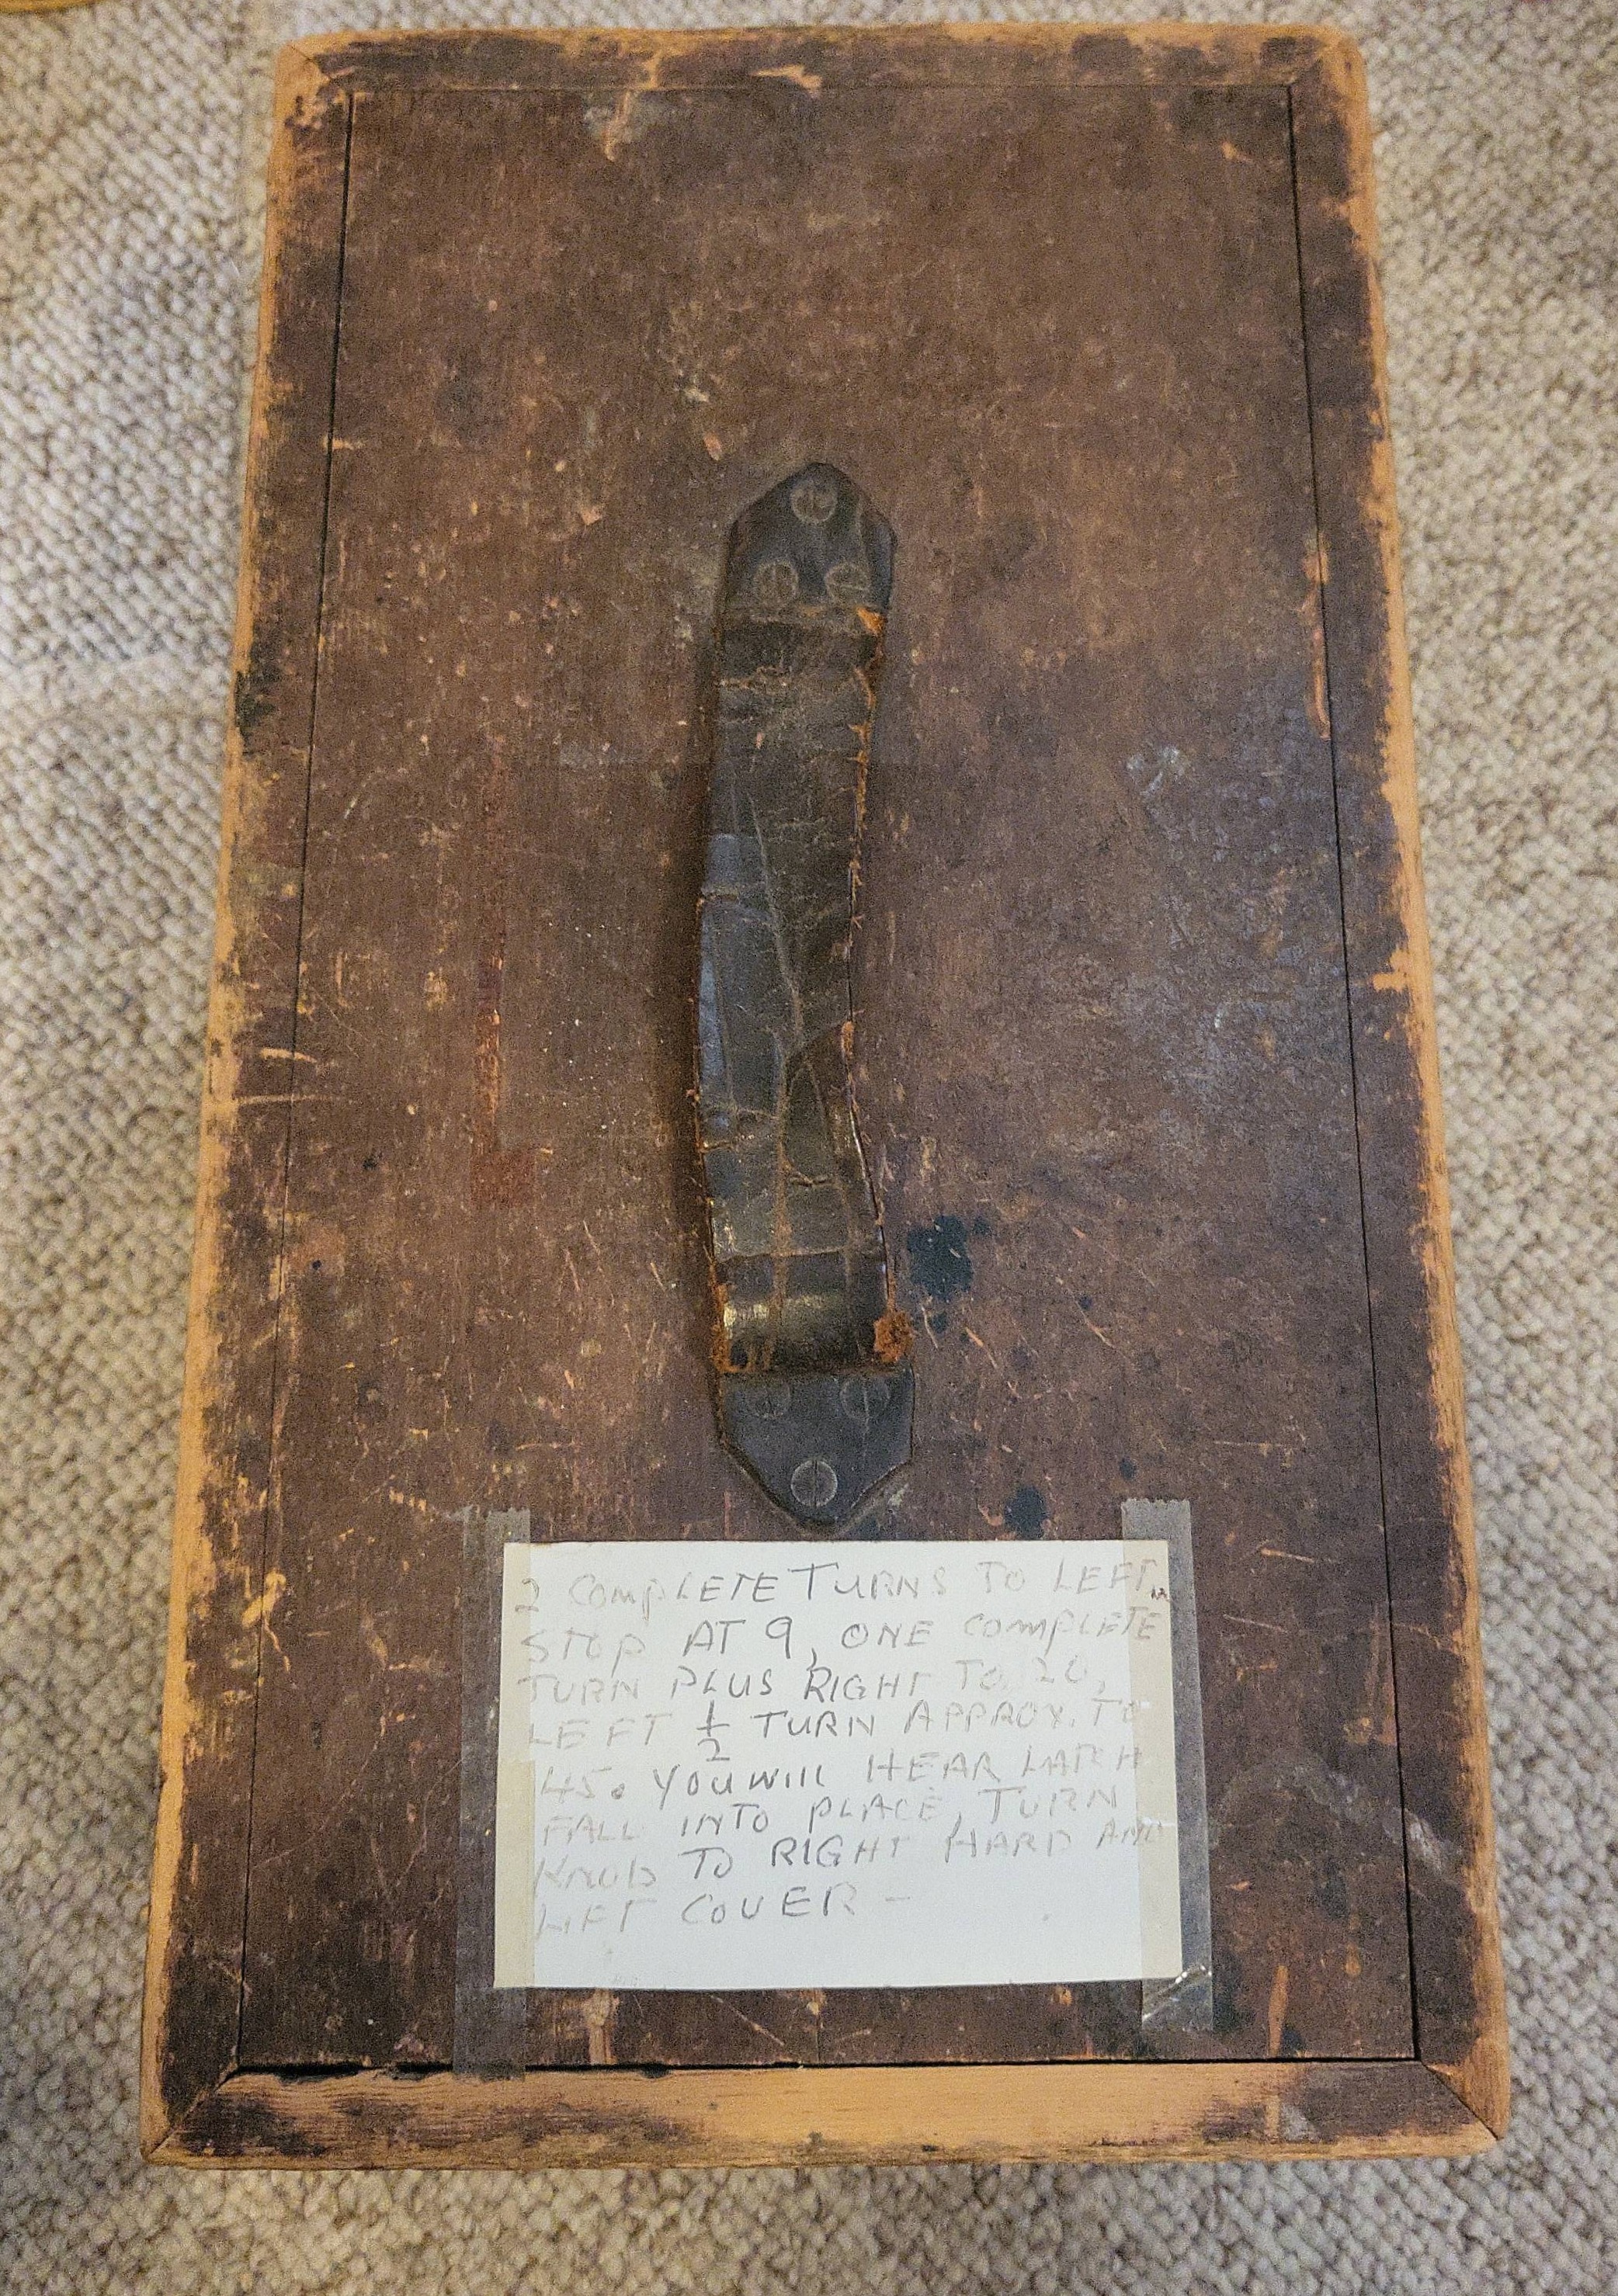 2 COMPLETE TURNS TO LEFT
STOP AT 9, ONE COMPLETE
TURN PLUS RIGHT TO 20,
LEFT 1/2 TURN APPROX. TO
45. YOU WILL HEAR LATCH
FALL INTO PLACE, TURN
KNOB TO RIGHT HARD AND
LIFT COVER -